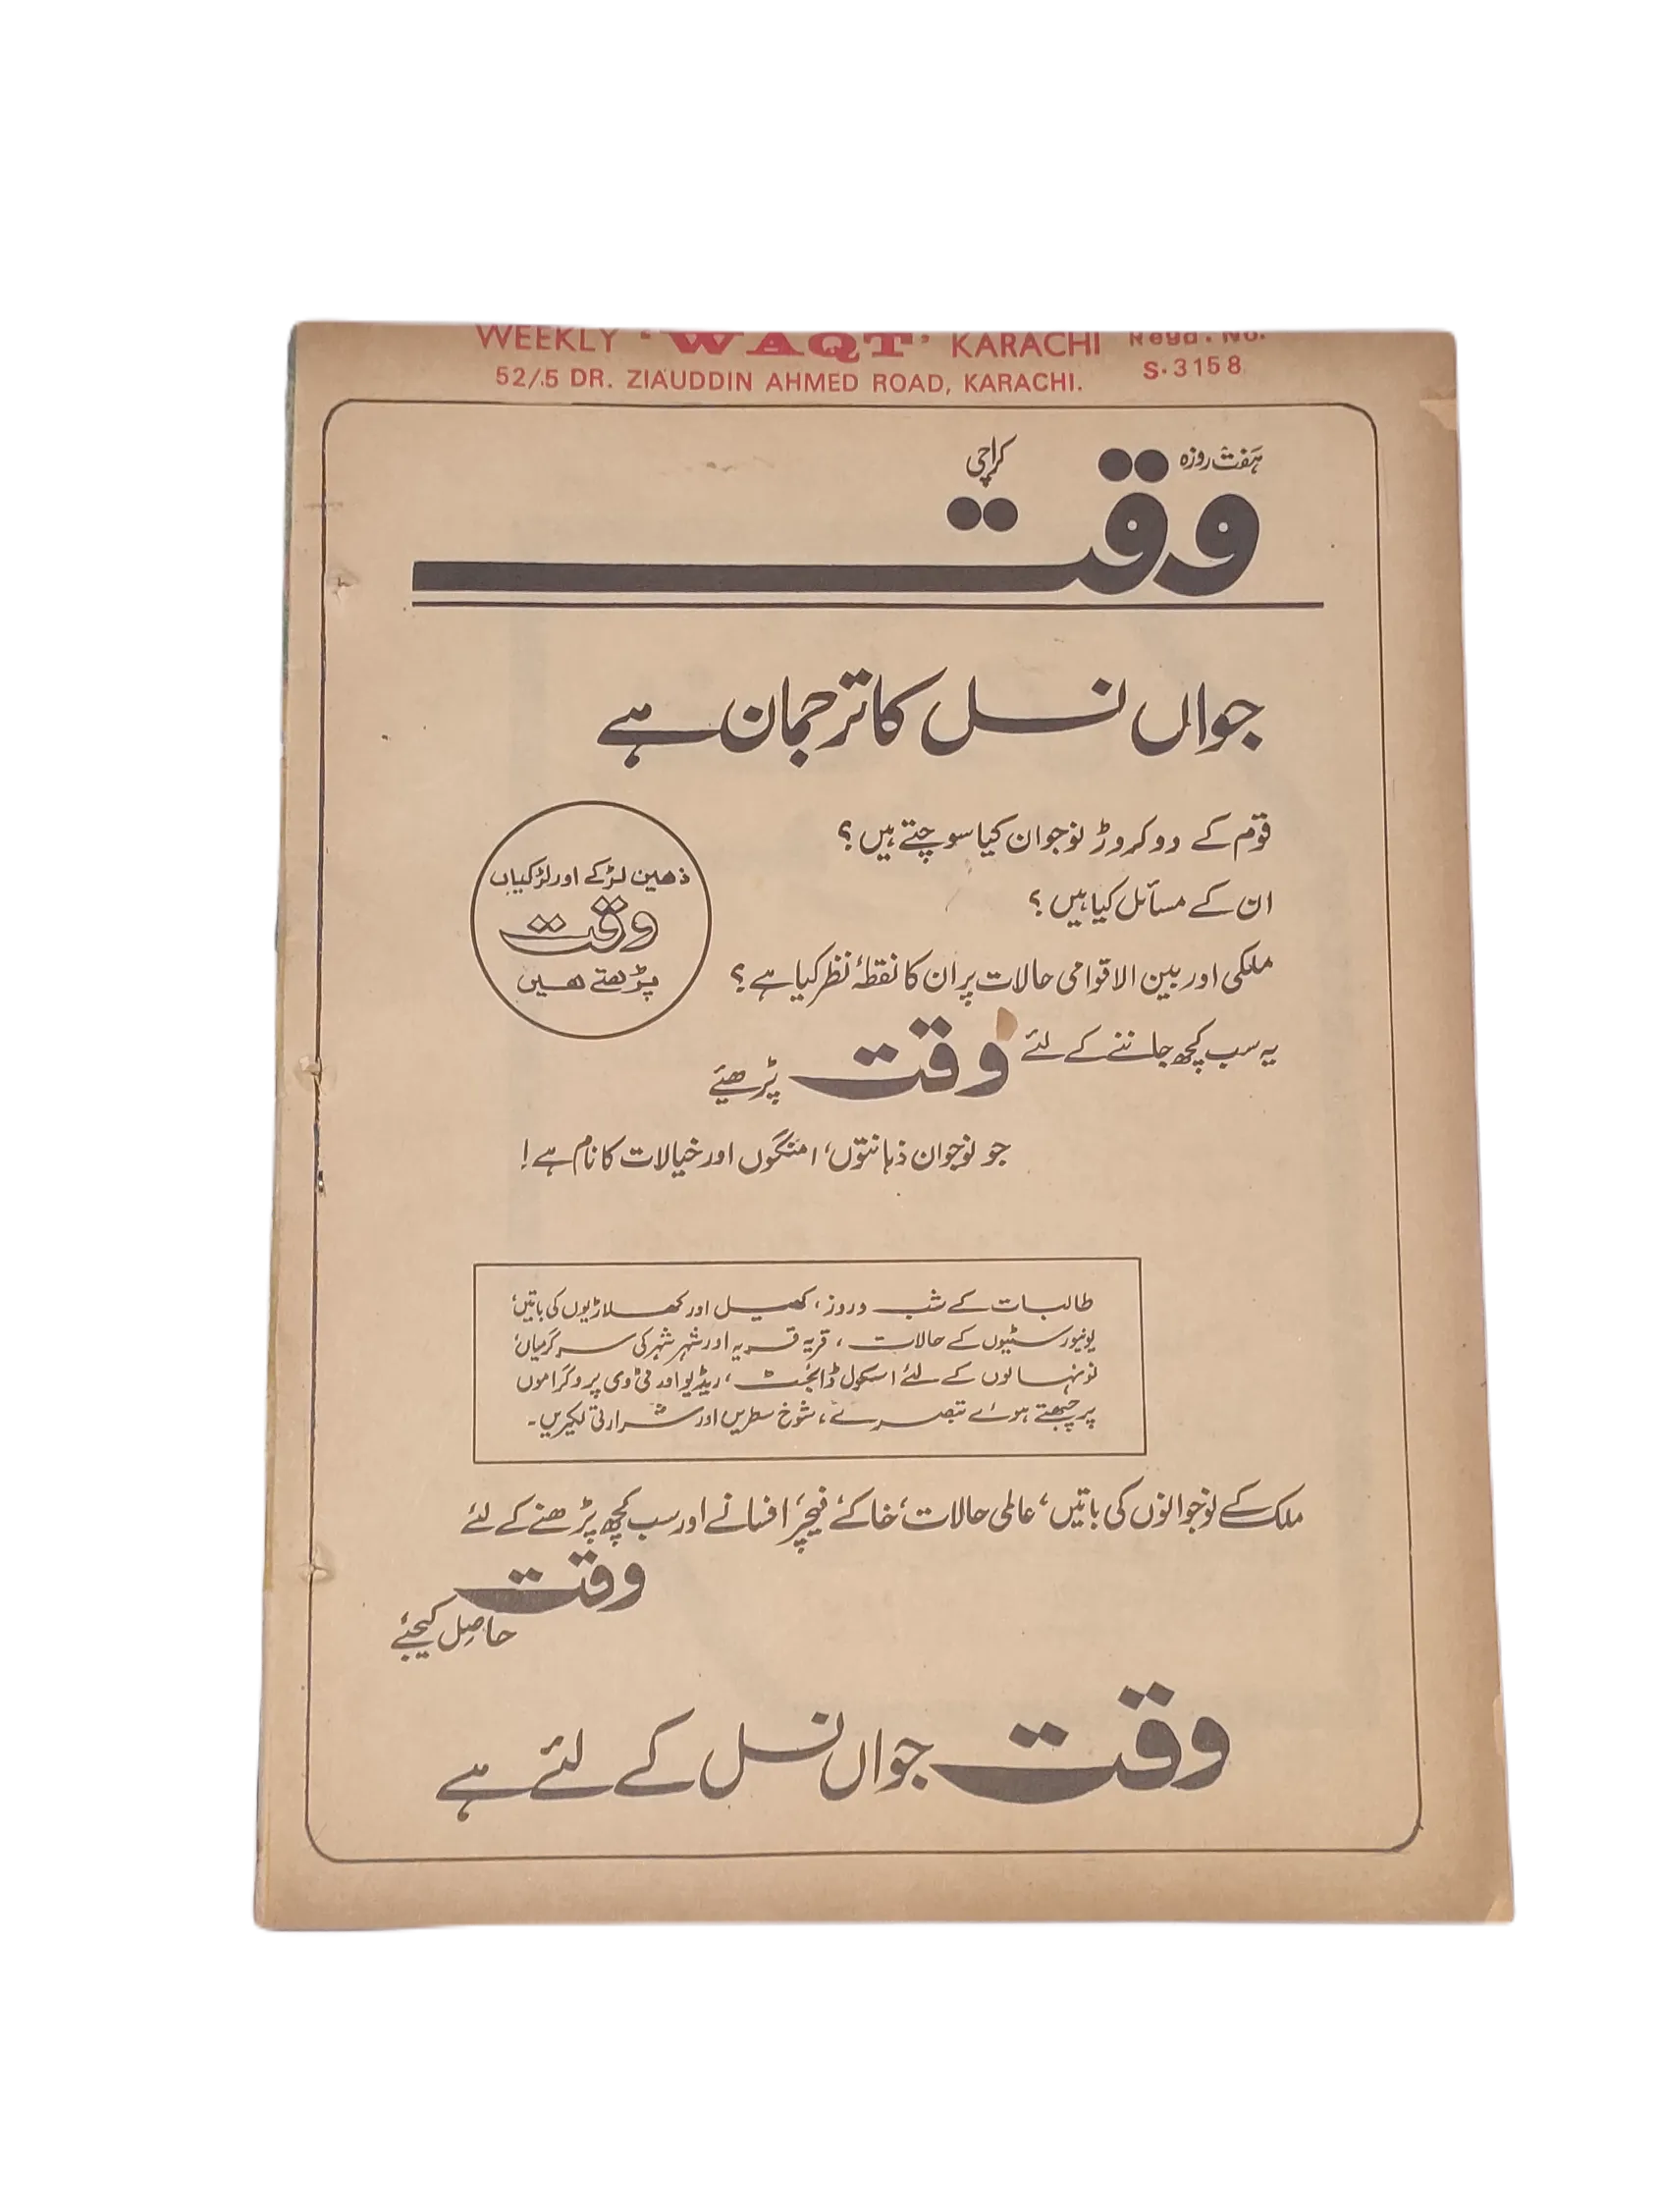 WEEKLY 'WAQT' KARACHI Regd. No.
52/.5 DR. ZIAUDDIN AHMED ROAD, KARACHI. S.3158
ہفت روزہ
وقت
کراچی
جواں نسل کا ترجمان ہے
قوم کے دو کروڑ نوجوان کیا سوچتے ہیں؟
ان کے مسائل کیا ہیں؟
ملکی اور بین الاقوامی حالات پر ان کا نقطۂ نظر کیا ہے؟
یہ سب کچھ جاننے کے لئے وقت پڑھیئے
جو نوجوان ذہانتوں، امنگوں اور خیالات کا نام ہے!
ذھین لڑکے اور لڑکیاں
وقت
پڑھتے ھیں
طالبات کے شب و روز، کھیل اور کھلاڑیوں کی باتیں،
یونیورسٹیوں کے حالات، قریہ قریہ اور شہر شہر کی سرگرمیاں،
نونہالوں کے لئے اسکول ڈائجسٹ، ریڈیو اور ٹی وی پروگراموں
پر چبھتے ہوئے تبصرے، شوخ سطریں اور شرارتی لکیریں۔
ملک کے نوجوانوں کی باتیں، عالمی حالات، خاکے، فیچر، افسانے اور سب کچھ پڑھنے کے لئے
وقت
حاصل کیجئے
وقت جواں نسل کے لئے ہے